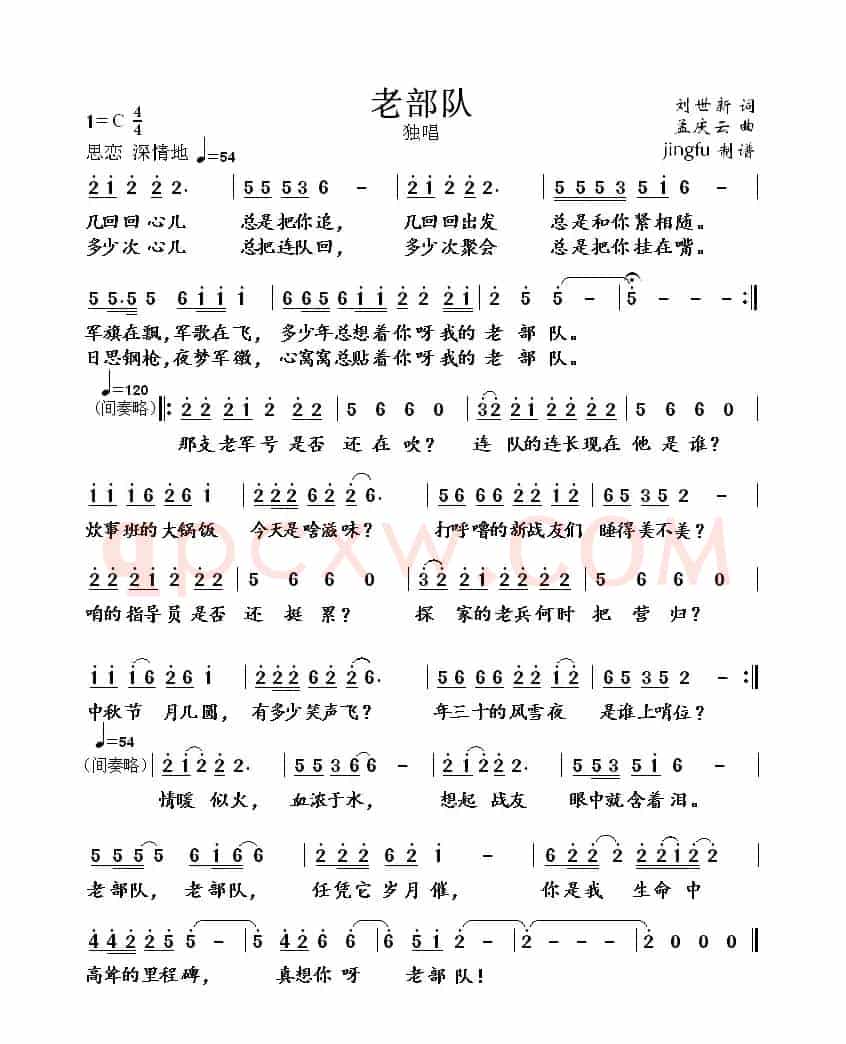 老部队
独唱
1=C 4/4
思恋 深情地 ♩=54
刘世新 词
孟庆云 曲
jingfu 制谱
2 1 2 2 2. | 5 5 5 3 6 - | 2 1 2 2 2. | 5 5 5 5 5 1 6 - |
几回回心儿 总是把你追， 几回回出发 总是和你紧相随。
多少次心儿 总把连队回， 多少次聚会 总是把你挂在嘴。
5 5.5 5 6 1 1 1 | 6 6 5 6 1 1 2 2 2 1 | 2 5 5 - - | 5 - - - :||
军旗在飘，军歌在飞， 多少年总想着你呀我的 老 部 队。
日思钢枪，夜梦军徽， 心窝窝总贴着你呀我的 老 部 队。
♩=120
（间奏略） ||: 2 2 2 1 2 2 2 | 5 6 6 0 | 3 2 2 1 2 2 2 2 | 5 6 6 0 |
那支老军号 是否 还 在 吹？ 连 队的连长现在 他 是 谁？
1 1 1 6 2 6 1 | 2 2 2 6 2 2 6. | 5 6 6 6 2 2 1 2 | 6 5 3 5 2 - |
炊事班的大锅饭 今天是啥滋味？ 打呼噜的新战友们 睡得美不美？
qpcxw.com
2 2 2 1 2 2 2 | 5 6 6 0 | 3 2 2 1 2 2 2 2 | 5 6 6 0 |
咱的指导员是否 还 挺 累？ 探 家的老兵何时 把 营 归？
1 1 1 6 2 6 1 | 2 2 2 6 2 2 6. | 5 6 6 6 2 2 1 2 | 6 5 3 5 2 - :||
中秋节 月儿圆， 有多少笑声飞？ 年三十的风雪夜 是谁上哨位？
♩=54
（间奏略） | 2 1 2 2 2. | 5 5 3 6 6 - | 2 1 2 2 2. | 5 5 5 3 5 1 6 - |
情暖 似火， 血浓于水， 想起 战友 眼中就含着泪。
5 5 5 5 5 6 1 6 6 | 2 2 2 6 2 1 - | 6 2 2 2 2 2 1 2 2 |
老部队， 老部队， 任凭它 岁月催， 你是我 生命中
4 4 2 2 5 5 - | 5 4 2 2 6 6 | 6 5 1 2 - | 2 - - - | 2 0 0 0 ||
高耸的里程碑， 真想你呀 老部队！